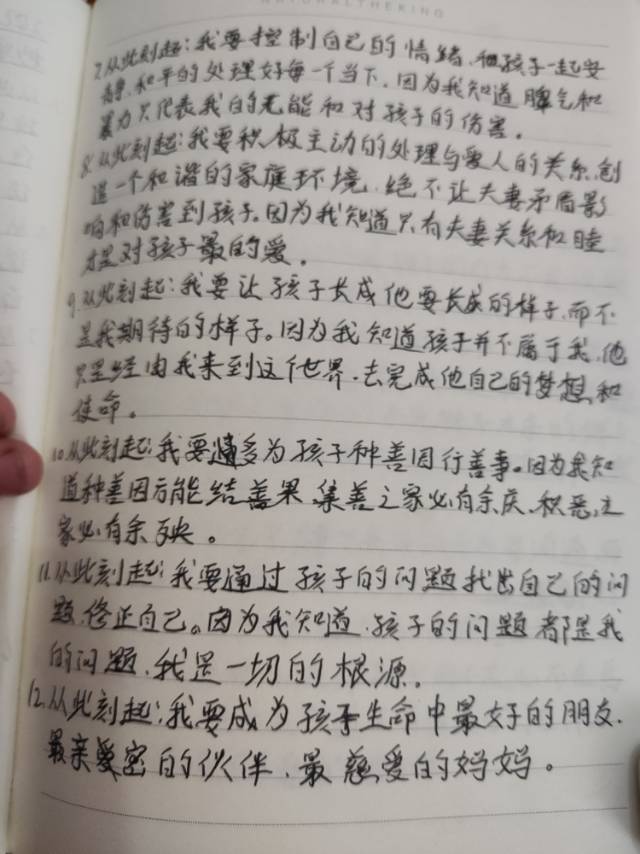 NATURALTHERING
7.从此刻起:我要控制自己的情绪,和孩子一起安
静、和平的处理好每一个当下。因为我知道脾气和
暴力只代表我的无能和对孩子的伤害。
8.从此刻起:我要积极主动的处理与爱人的关系,创
造一个和谐的家庭环境,绝不让夫妻矛盾影
响和伤害到孩子。因为我知道只有夫妻关系和睦
才是对孩子最的爱。
9.从此刻起:我要让孩子长成他要长成的样子,而不
是我期待的样子。因为我知道孩子并不属于我,他
只是经由我来到这个世界,去完成他自己的梦想和
使命。
10.从此刻起:我要多为孩子种善因行善事。因为我知
道种善因方能结善果,集善之家必有余庆、积恶之
家必有余殃。
11.从此刻起:我要通过孩子的问题找出自己的问
题,修正自己。因为我知道,孩子的问题都是我
的问题,我是一切的根源。
12.从此刻起:我要成为孩子生命中最好的朋友,
最亲爱密的伙伴、最慈爱的妈妈。